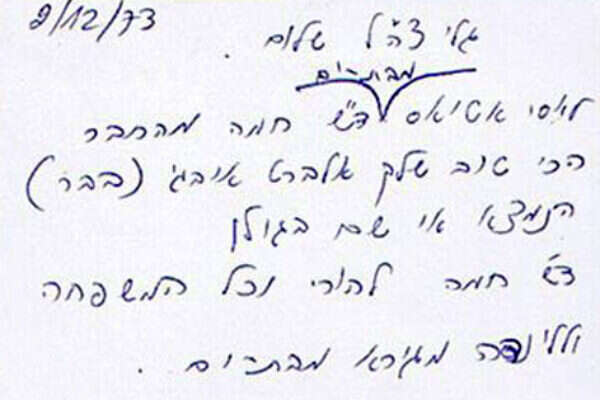 9/12/73
גלי צה"ל שלום.
מבת-ים
ליוסי אטיאס ד"ש חמה מהחבר
הכי טוב שלך אלברט איבגי (בבר)
הנמצא אי שם בגולן
ד"ש חמה להורי וכל המשפחה
וללינדה מגירא מבת-ים.